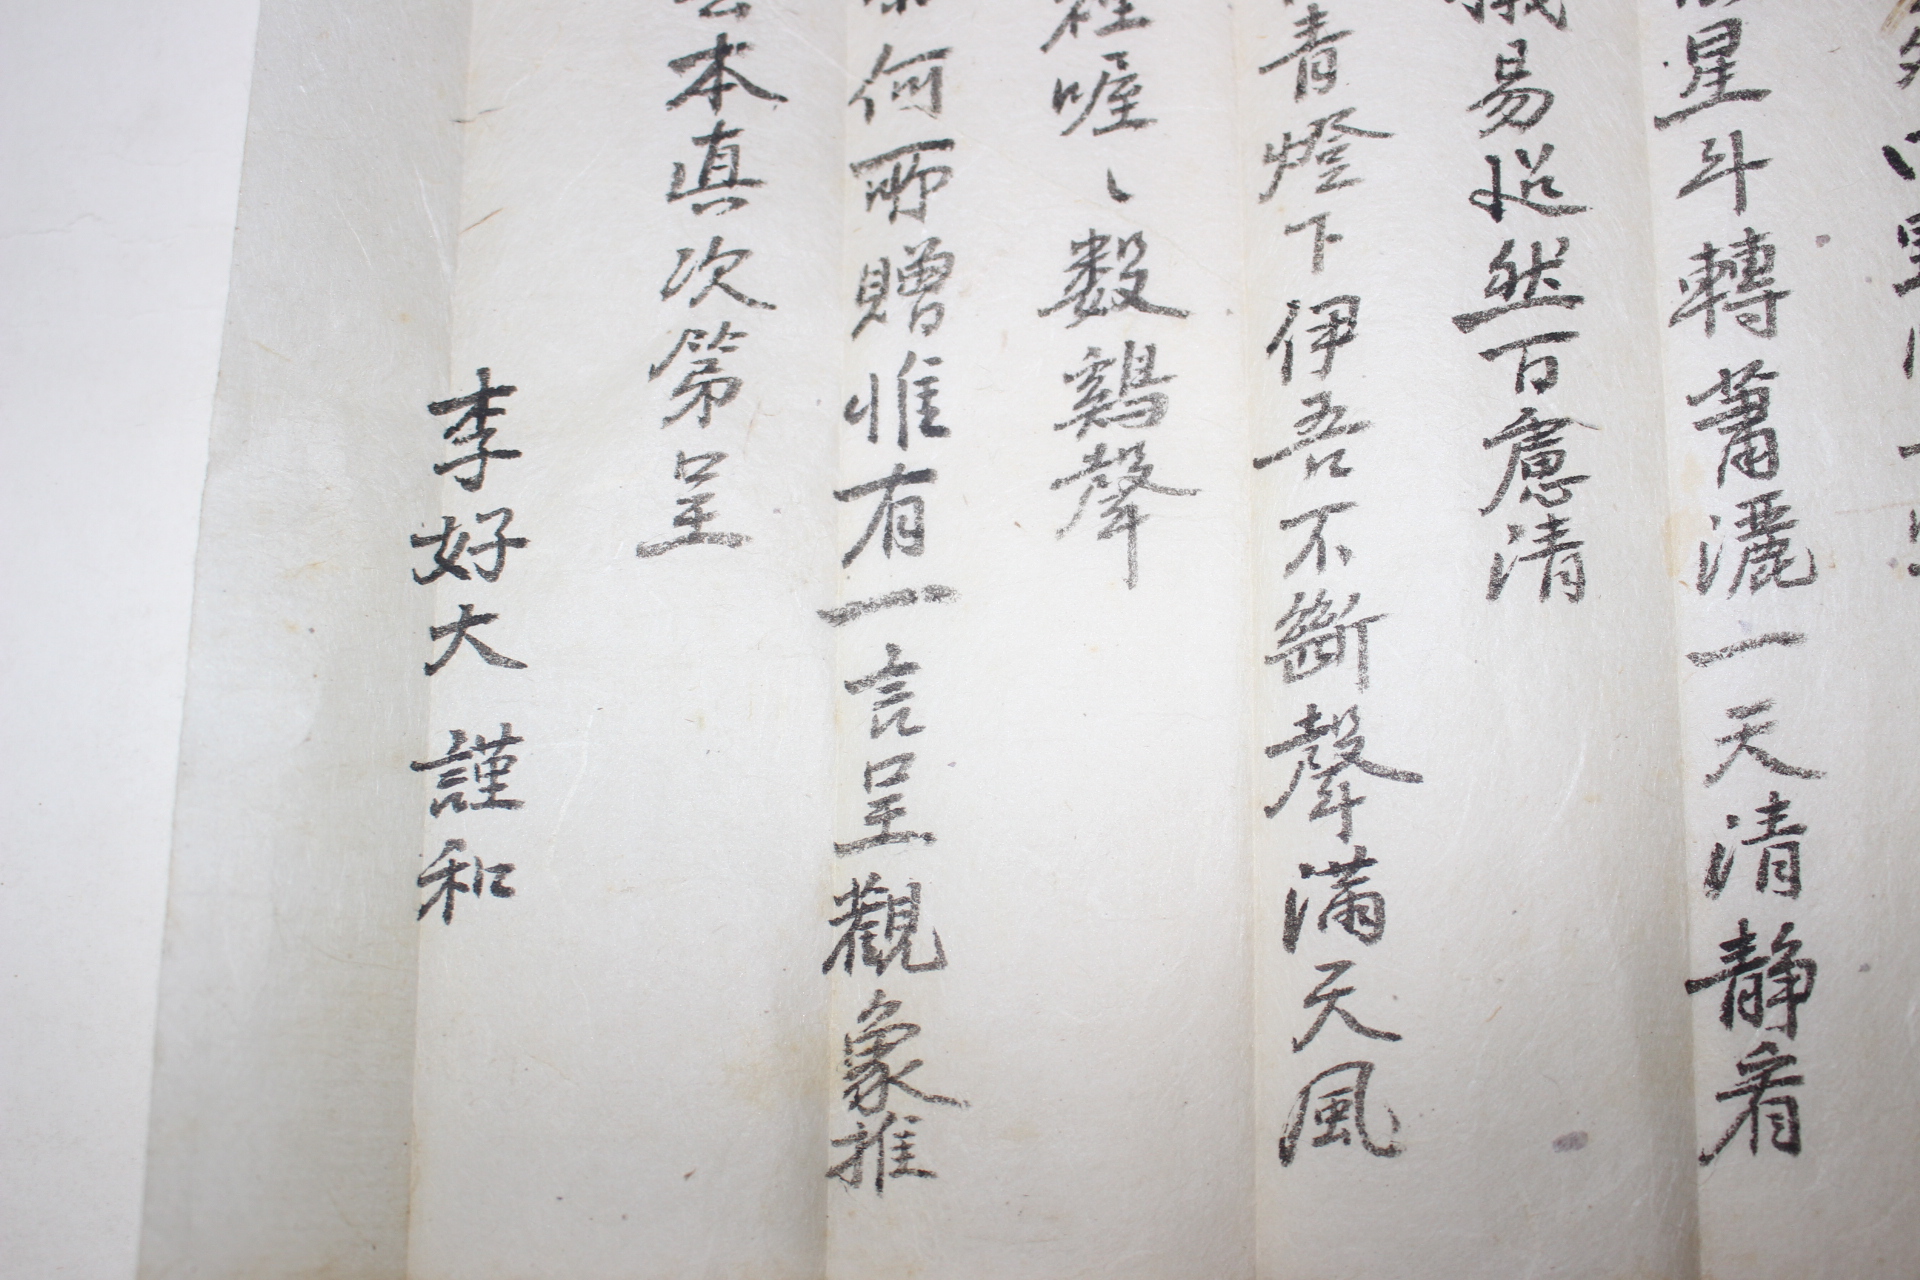 星斗轉蕭灑一天清静看
易迢然百慮清
青燈下伊吾不斷聲滿天風
喔〻數鷄聲
何所贈惟有一言呈觀象推
本真次第呈
李好大 謹和